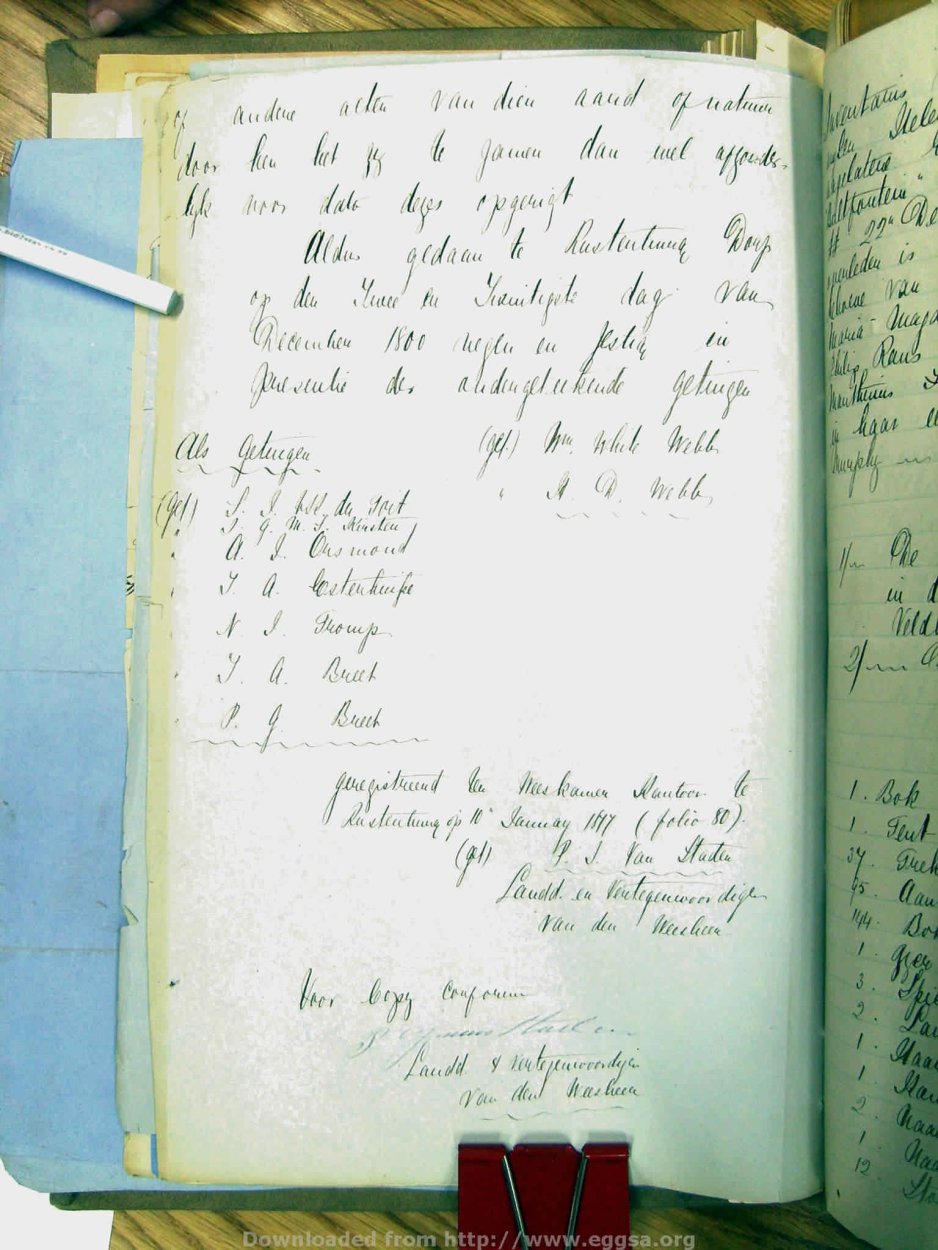 of andere acten van dien aard of natuur
door hen het zy te zamen dan wel afzonder-
lyk voor dato dezes opgerigt
Aldus gedaan te Rustenburg Dorp
op den Twee en Twintigste dag van
December 1800 negen en Zestig in
presentie der ondergeteekende getuigen
Als Getuigen
(get.) Wm. White Webb
" H. D. Webb
(get) S. J. du Toit
A. J. Orsmond
J. A. Oosterhuise
N. J. Tromp
J. A. Breet
P. G. Breet
geregistreerd ten Weeskamer Kantoor te
Rustenburg op 10 January 1877 (folio 80).
(get) P. J. Van Staden
Landd. en Vertegenwoordiger
van den Weesheer
Voor Copy conform
Landd. & Vertegenwoordiger
van den Weesheer
Inventaris
22n De
overleden is
Maria Magda
Philip
in haar
Murphy
1/ De
in d
Veld
2/
1. Bok
1. Tent
37. Trek
95. Aan
144. Bok
1.
3.
2.
1.
1.
2.
1.
12
Downloaded from http://www.eggsa.org